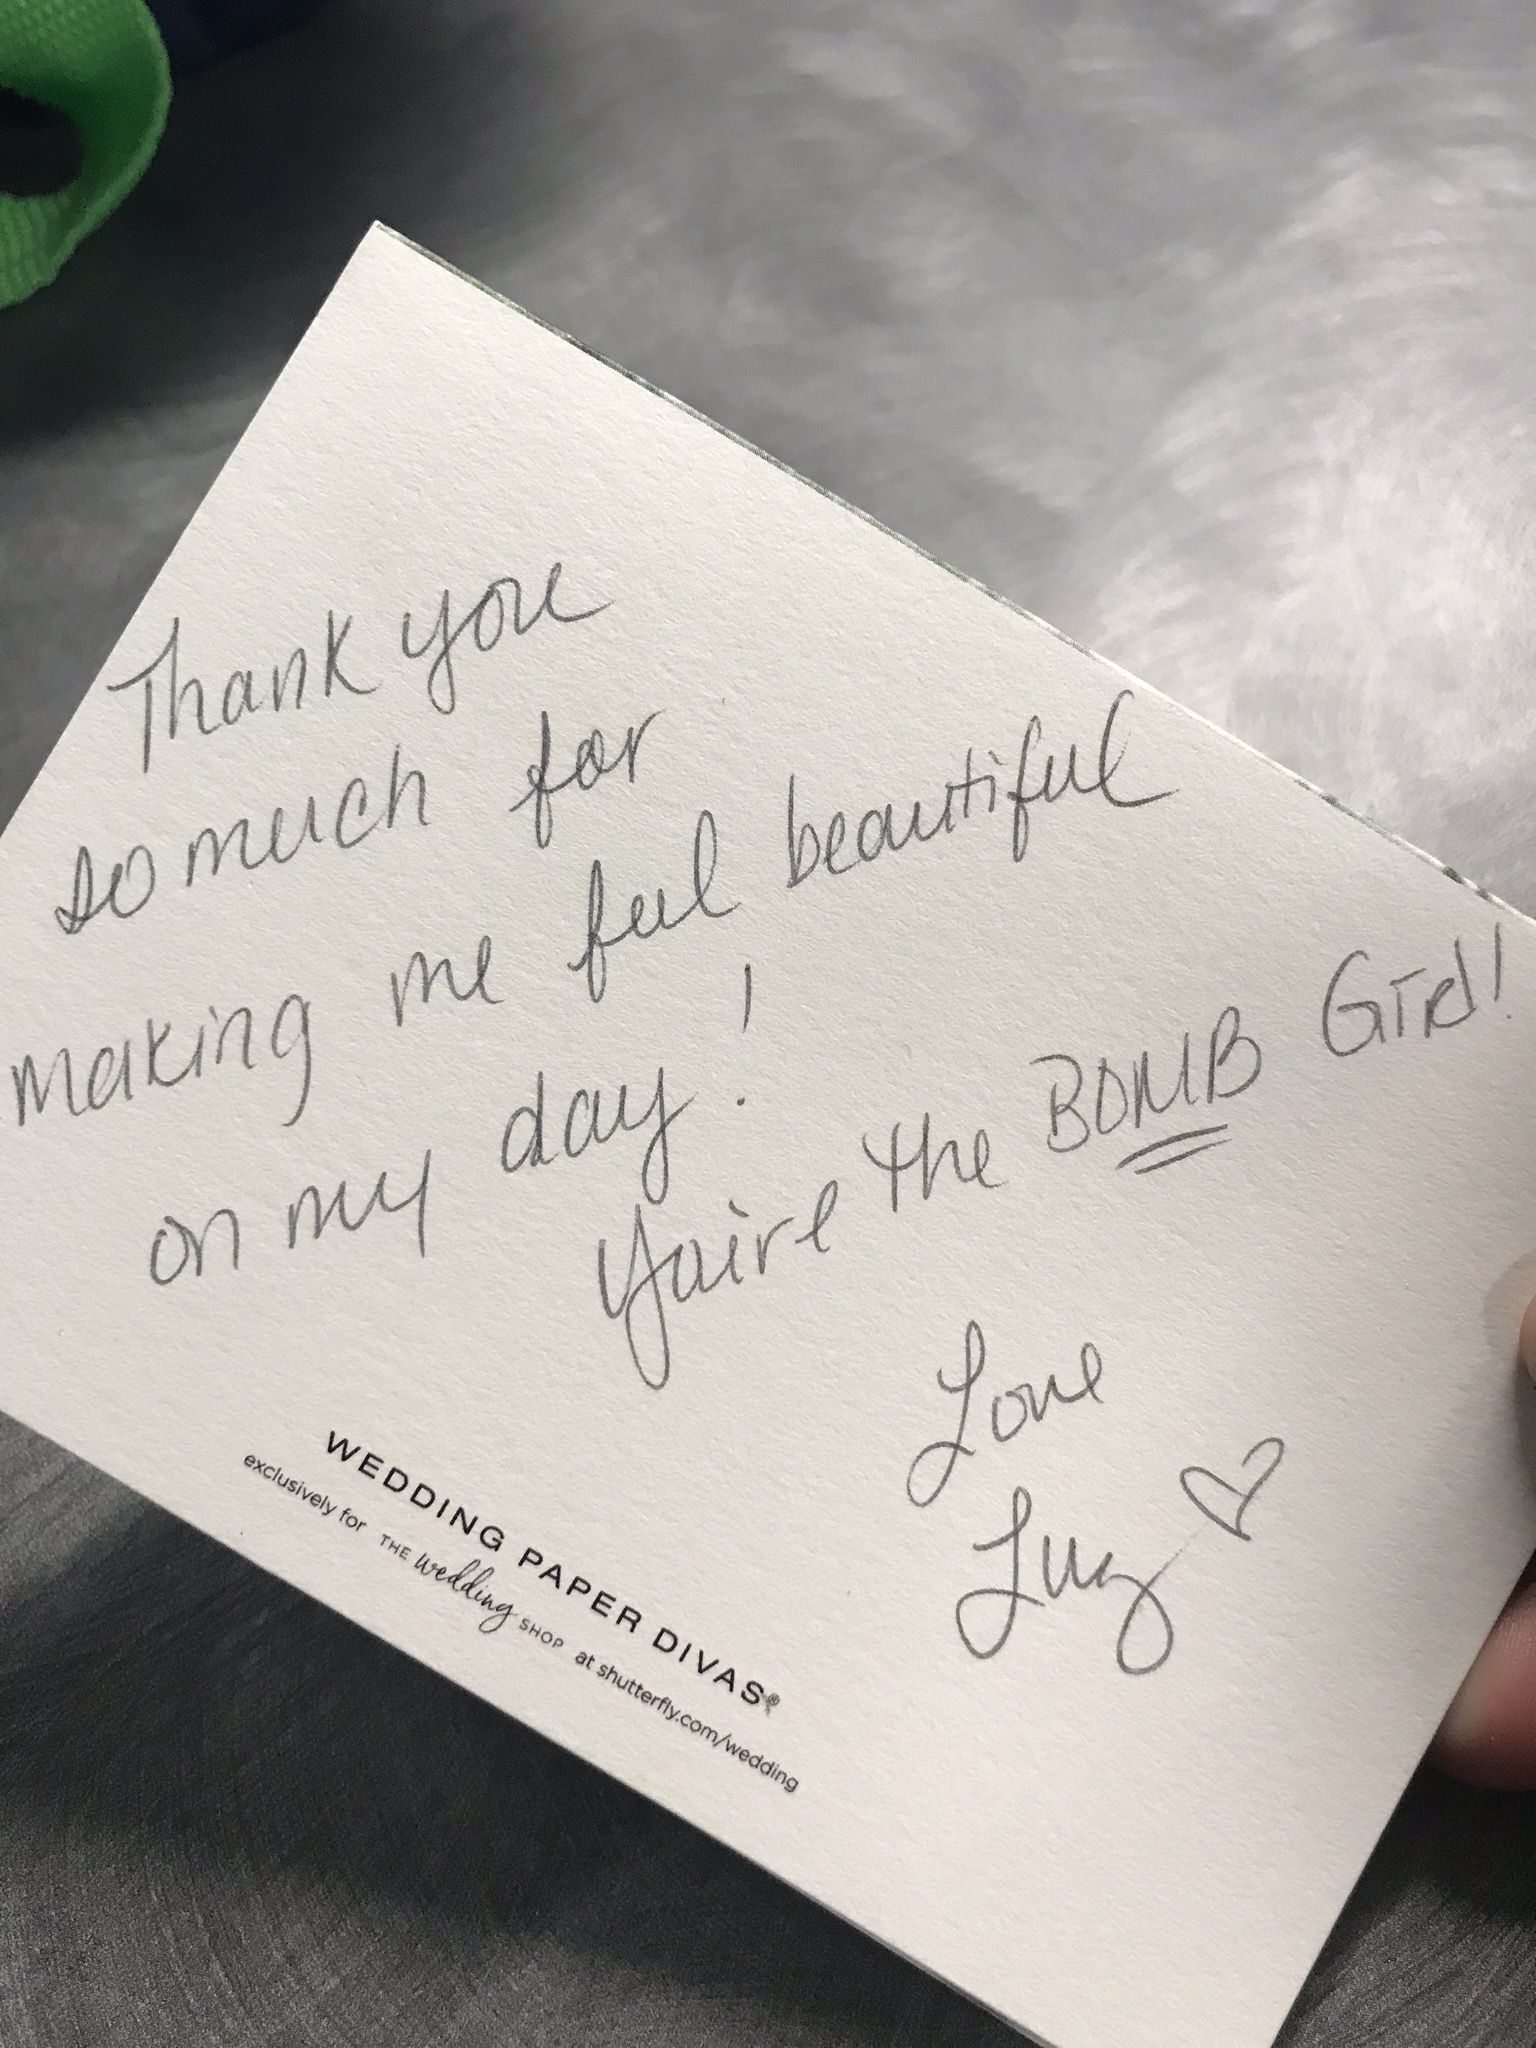 Thank you
so much for
making me feel beautiful
on my day!
You're the BOMB Girl!
Love
Luz ♡
WEDDING PAPER DIVAS®
exclusively for THE wedding SHOP at shutterfly.com/wedding